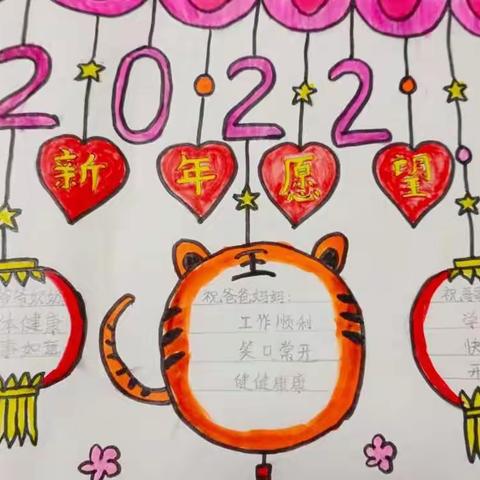 2022
新年愿望
爷爷奶奶
体健康
事如意
王
祝爸爸妈妈：
工作顺利
笑口常开
健健康康
祝
学
快
开